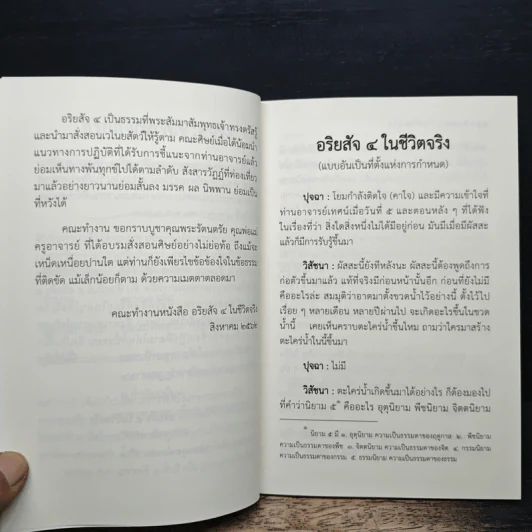 อริยสัจ ๔ เป็นธรรมที่พระสัมมาสัมพุทธเจ้าทรงตรัสรู้
และนำมาสั่งสอนเวไนยสัตว์ให้รู้ตาม คณะศิษย์เมื่อได้น้อมนำ
แนวทางการปฏิบัติที่ได้รับการชี้แนะจากท่านอาจารย์แล้ว
ย่อมเห็นทางพ้นทุกข์ไปได้ตามลำดับ สังสารวัฏฏ์ที่ท่องเที่ยว
มาแล้วอย่างยาวนานย่อมสั้นลง มรรค ผล นิพพาน ย่อมเป็น
ที่หวังได้
คณะทำงาน ขอกราบบูชาคุณพระรัตนตรัย คุณพ่อแม่
ครูอาจารย์ ที่ได้อบรมสั่งสอนศิษย์อย่างไม่ย่อท้อ ถึงแม้จะ
เหน็ดเหนื่อยปานใด แต่ท่านก็ยังเพียรไขข้อข้องใจในข้อธรรม
ที่ติดขัด แม้เล็กน้อยก็ตาม ด้วยความเมตตาตลอดมา
คณะทำงานหนังสือ อริยสัจ ๔ ในชีวิตจริง
สิงหาคม
อริยสัจ ๔ ในชีวิตจริง
(แบบอันเป็นที่ตั้งแห่งการกำหนด)
ปุจฉา : โยมกำลังติดใจ (คาใจ) และมีความเข้าใจที่
ท่านอาจารย์เทศน์เมื่อวันที่ ๕ และตอนหลัง ๆ ที่ได้ฟัง
ในเรื่องที่ว่า สิ่งใดสิ่งหนึ่งไม่ได้มีอยู่ก่อน มันมีเมื่อมีผัสสะ
แล้วก็มีการรับรู้ขึ้นมา
วิสัชนา : ผัสสะนี้ยังที่หลังนะ ผัสสะนี้ต้องพูดถึงการ
ก่อตัวขึ้นมาแล้ว แท้ที่จริงมีก่อนหน้านั้นอีก ก่อนที่ยังไม่มี
คืออะไรล่ะ สมมุติว่าอาตมาตั้งขวดน้ำไว้อย่างนี้ ตั้งไว้ไป
เรื่อย ๆ หลายเดือน หลายปีผ่านไป จะเกิดอะไรขึ้นในขวด
น้ำนี้ เคยเห็นคราบตะไคร่น้ำขึ้นไหม ถามว่าใครมาสร้าง
ตะไคร่น้ำในนี้ขึ้นมา
ปุจฉา : ไม่มี
วิสัชนา : ตะไคร่น้ำเกิดขึ้นมาได้อย่างไร ก็ต้องมองไป
ที่คำว่านิยาม ๕ คืออะไร อุตุนิยาม พีชนิยาม จิตตนิยาม
นิยาม ๕ มี ๑. อุตุนิยาม ความเป็นธรรมดาของฤดูกาล ๒. พีชนิยาม
ความเป็นธรรมดาของพืช ๓. จิตตนิยาม ความเป็นธรรมดาของจิต ๔. กรรมนิยาม
ความเป็นธรรมดาของกรรม ๕. ธรรมนิยาม ความเป็นธรรมดาของธรรม